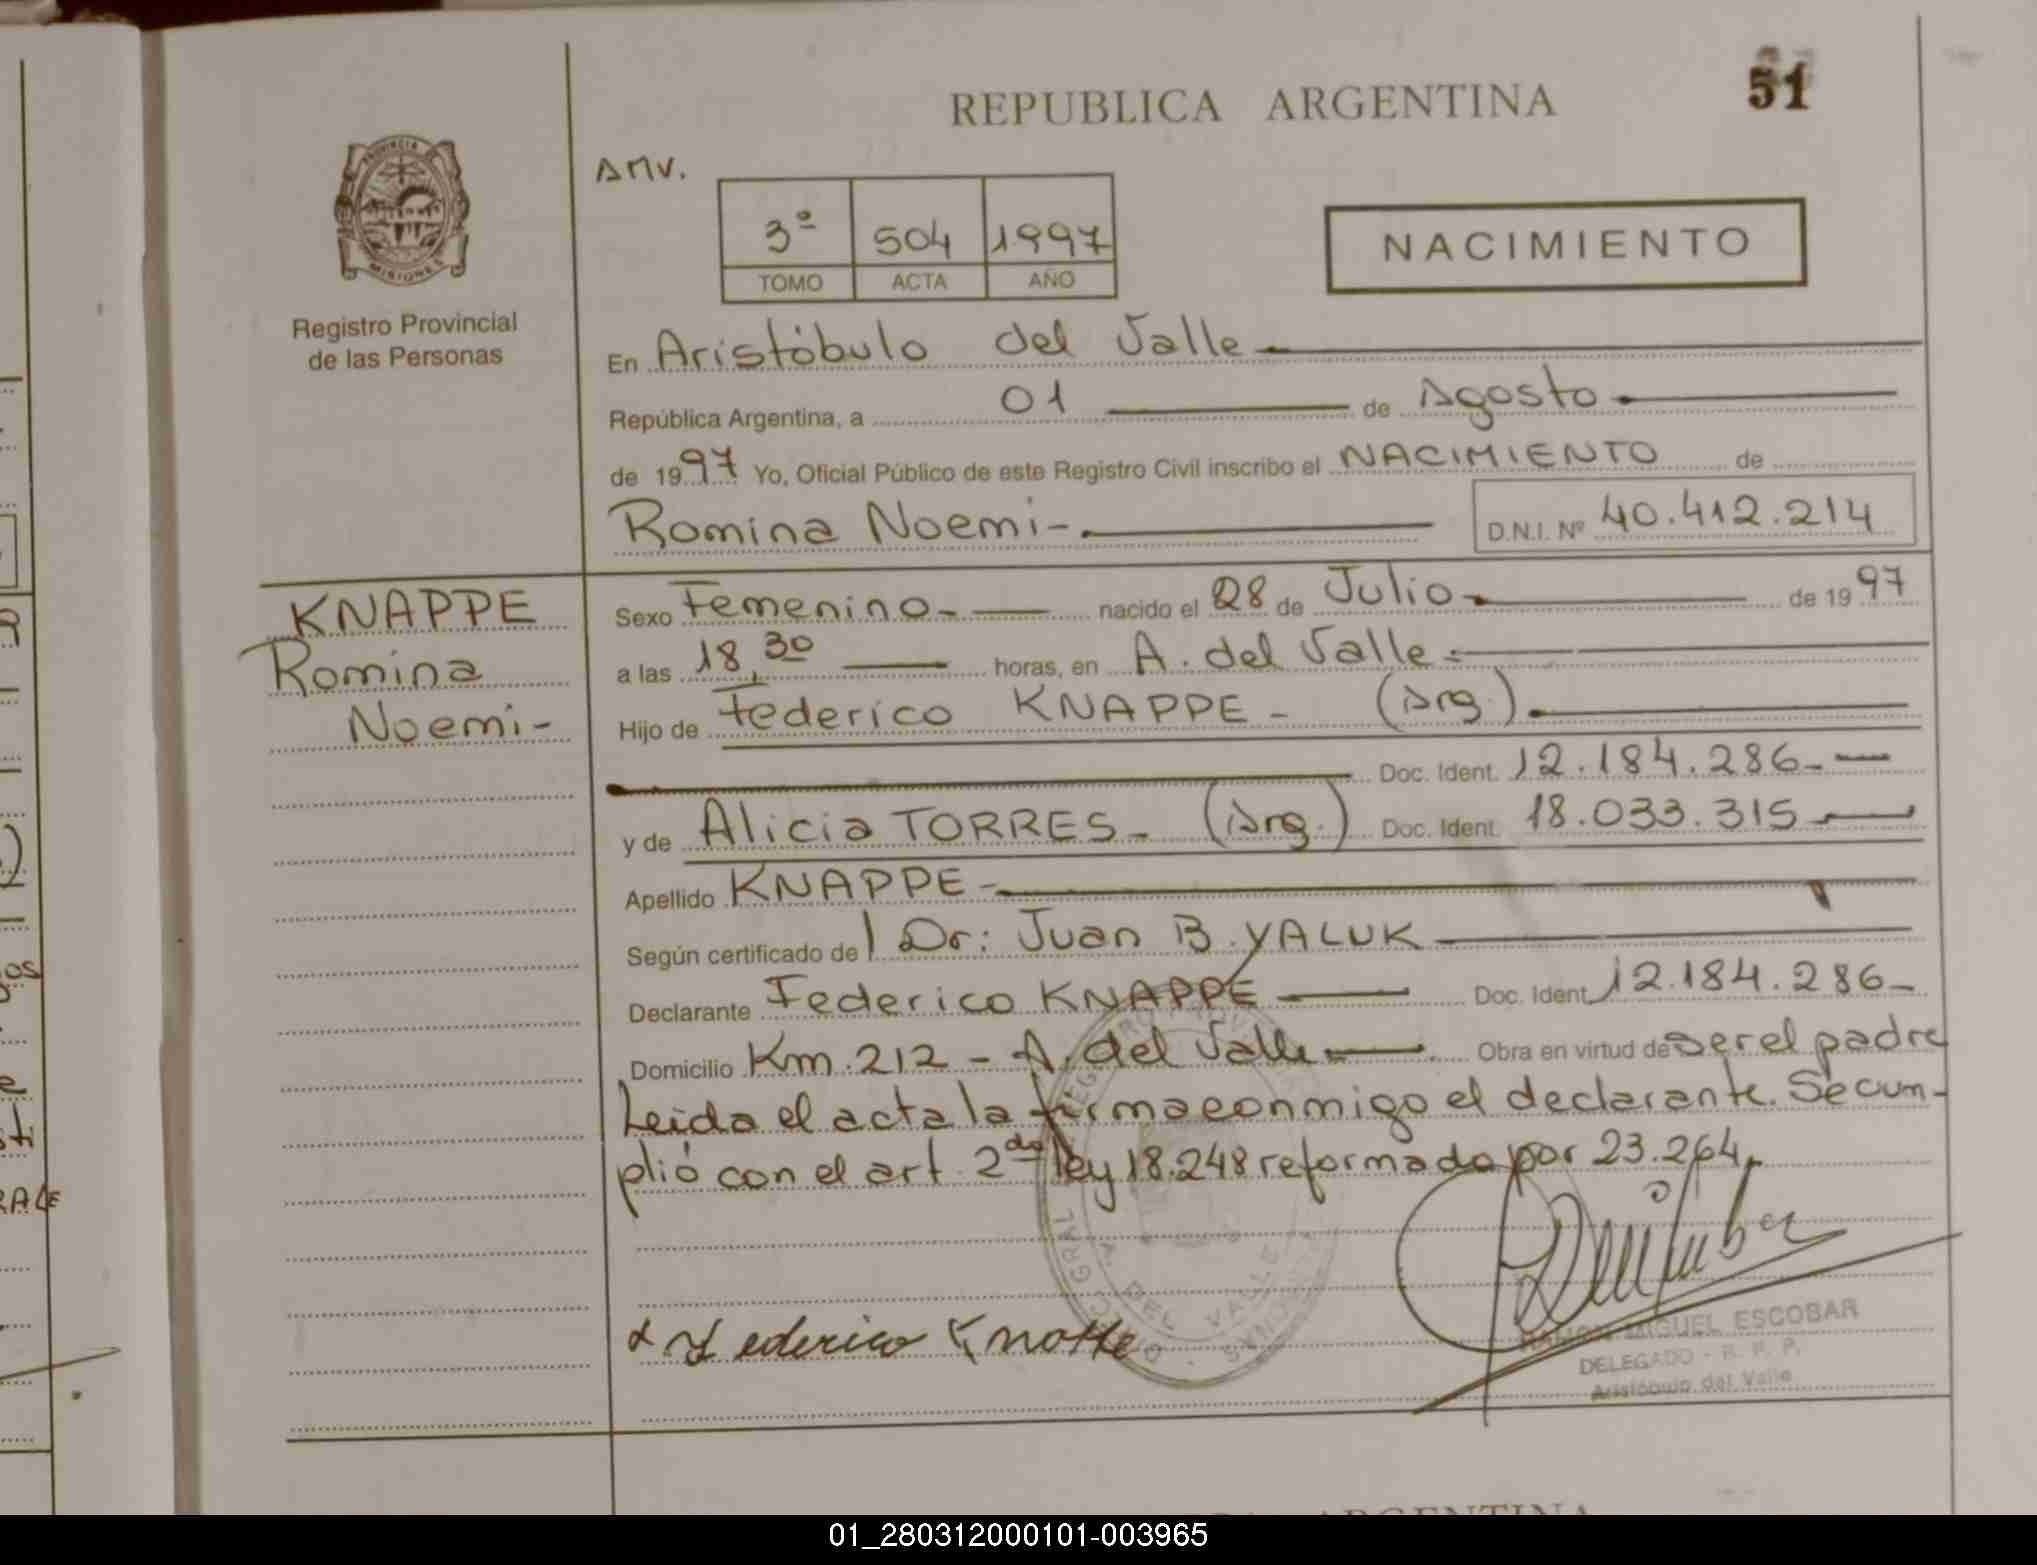 REPUBLICA ARGENTINA
51
AMV.
3º 504 1997
TOMO ACTA AÑO
NACIMIENTO
PROVINCIA DE
MISIONES
Registro Provincial
de las Personas
En Aristóbulo del Valle
República Argentina, a 01 de Agosto
de 1997 Yo, Oficial Público de este Registro Civil inscribo el NACIMIENTO de
Romina Noemi- D.N.I. Nº 40.412.214
KNAPPE
Romina
Noemi-
Sexo Femenino- nacido el 28 de Julio de 1997
a las 18,30 horas, en A. del Valle
Hijo de Federico KNAPPE - (Arg.)
Doc. Ident. 12.184.286-
y de Alicia TORRES- (Arg.) Doc. Ident. 18.033.315
Apellido KNAPPE-
Según certificado de Dr: Juan B. YALUK
Declarante Federico KNAPPE Doc. Ident. 12.184.286-
Domicilio Km. 212 - A. del Valle Obra en virtud de ser el padre
Leida el acta la firma conmigo el declarante. Se cum-
plió con el art. 2do ley 18.248 reformado por 23.264.
DEL VALLE
Federico
RAMON MIGUEL ESCOBAR
DELEGADO - R. P. P.
Aristóbulo del Valle
ARGENTINA
01_280312000101-003965